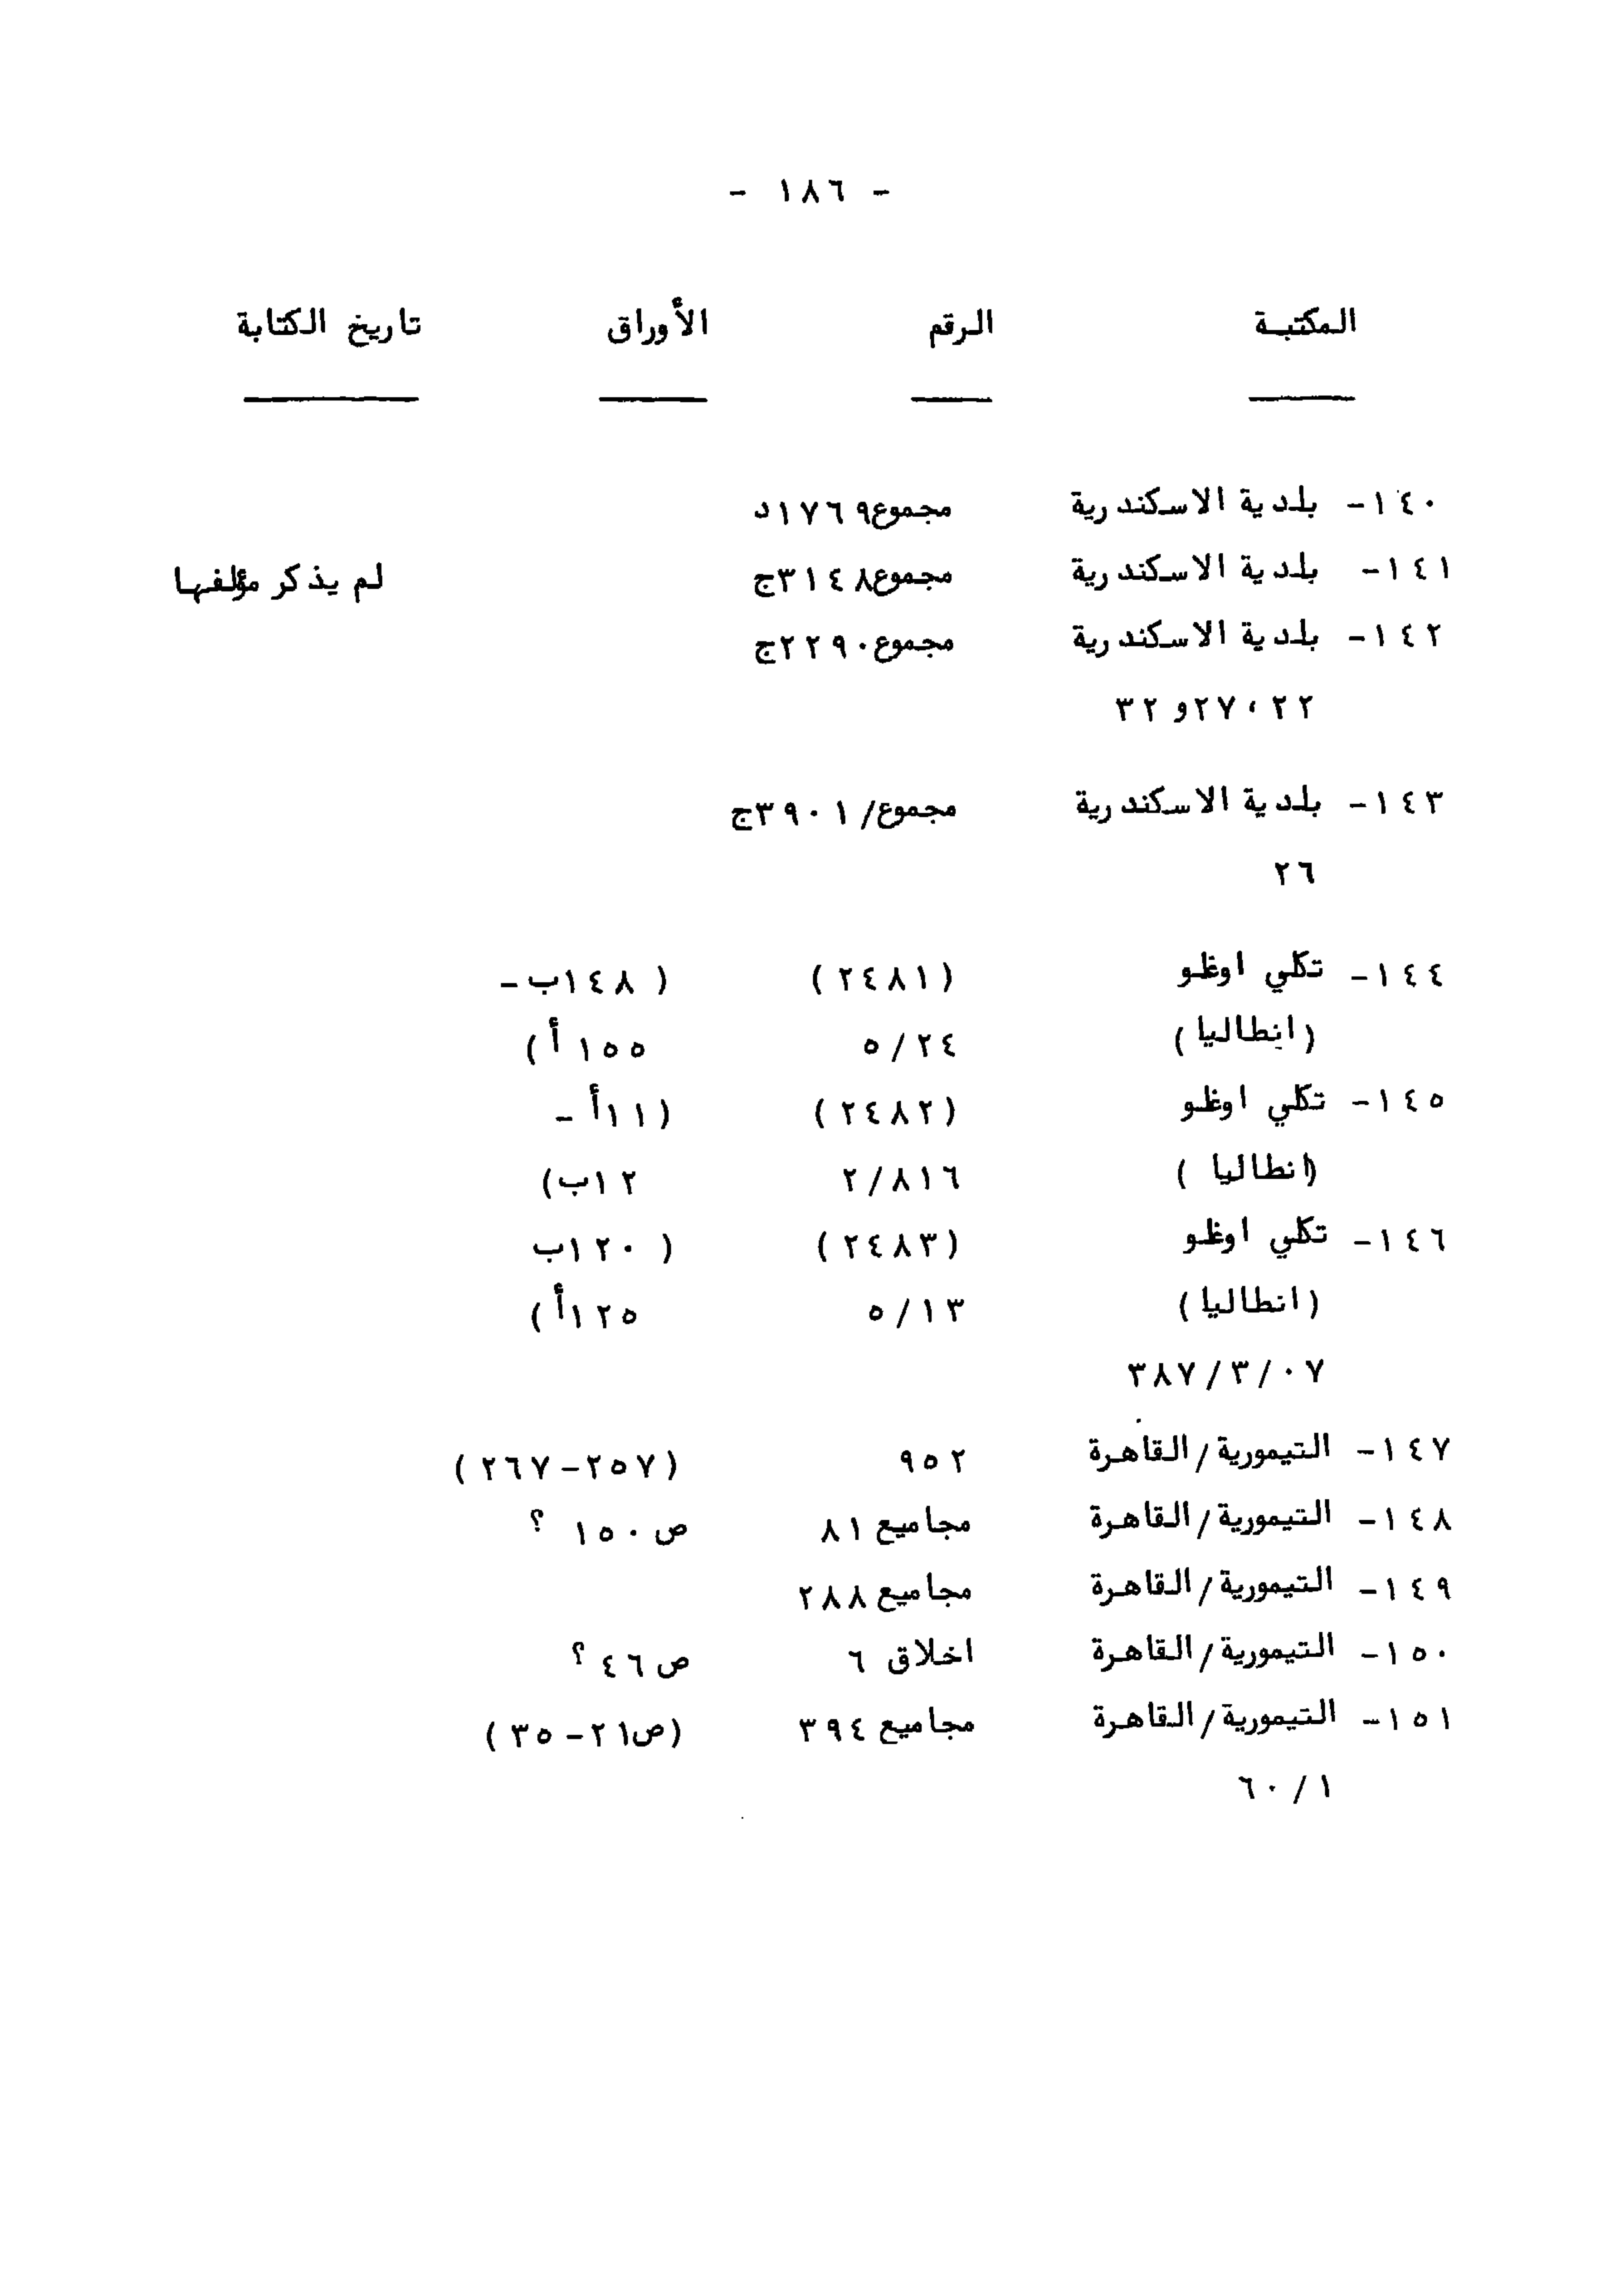 - ١٨٦ -
المكتبة الرقم الأوراق تاريخ الكتابة
١٤٠- بلدية الاسكندرية مجموع١٧٦٩د
١٤١- بلدية الاسكندرية مجموع٣١٤٨ج لم يذكر مؤلفها
١٤٢- بلدية الاسكندرية مجموع٢٢٩٠ج
٢٢،٢٧و ٣٢
١٤٣- بلدية الاسكندرية مجموع/٣٩٠١ج
٢٦
١٤٤- تكلي اوغلو (٢٤٨١) ( ١٤٨ب -
(انطاليا) ٥/٢٤ ١٥٥ أ)
١٤٥- تكلي اوغلو (٢٤٨٢) (١١أ -
(انطاليا ) ٢/٨١٦ ١٢ب)
١٤٦- تكلي اوغلو (٢٤٨٣) ( ١٢٠ب
(انطاليا) ٥/١٣ ١٢٥أ)
٣٨٧/٣/٠٧
١٤٧- التيمورية/القاهرة ٩٥٢ (٢٥٧-٢٦٧)
١٤٨- التيمورية/القاهرة مجاميع ٨١ ص١٥٠ ؟
١٤٩- التيمورية/القاهرة مجاميع ٢٨٨
١٥٠- التيمورية/القاهرة اخلاق ٦ ص٤٦ ؟
١٥١- التيمورية/القاهرة مجاميع ٣٩٤ (ص٢١-٣٥)
٦٠/١